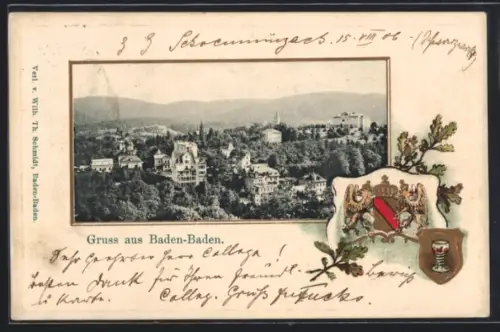 z. Z. Schoenmünzach 15 VIII 06
Verl. v. Wilh. Th. Schmidt, Baden-Baden.
Gruss aus Baden-Baden.
Sehr geehrter Herr College!
besten Dank für Ihren
u Karte. Colleg. Gruß